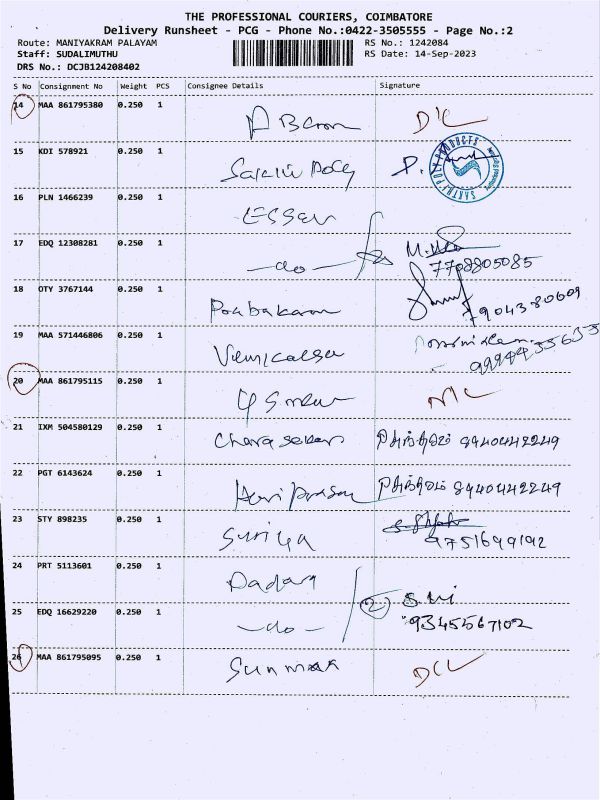 THE PROFESSIONAL COURIERS, COIMBATORE
Delivery Runsheet - PCG - Phone No.:0422-3505555 - Page No.:2
Route: MANIYAKRAM PALAYAM RS No.: 1242084
Staff: SUDALIMUTHU RS Date: 14-Sep-2023
DRS No.: DCJB124208402
S No Consignment No Weight PCS Consignee Details Signature
14 MAA 861795380 0.250 1
15 KDI 578921 0.250 1 Sakthi Poly P.
SAKTHI POLY PRODUCTS
16 PLN 1466239 0.250 1 ESSEN
17 EDQ 12308281 0.250 1 -do- 7708805085
18 OTY 3767144 0.250 1 Prabakaran 7904380609
19 MAA 571446806 0.250 1
20 MAA 861795115 0.250 1
21 IXM 504580129 0.250 1 Chara sekar 8940442249
22 PGT 6143624 0.250 1 Hari Prasan 8940442249
23 STY 898235 0.250 1 Suriya 9751699192
24 PRT 5113601 0.250 1 (2)
25 EDQ 16629220 0.250 1 -do- 9345567102
26 MAA 861795095 0.250 1 Sunmax